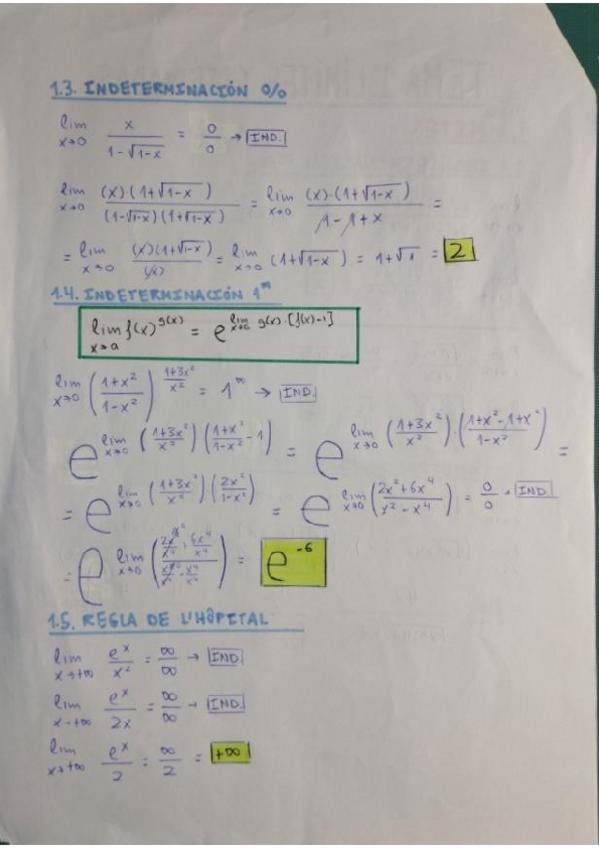 1.3. INDETERMINACIÓN 0/0
lim x→0 x / (1-√(1-x)) = 0/0 → IND.
lim x→0 (x)·(1+√(1-x)) / ((1-√(1-x))(1+√(1-x))) = lim x→0 (x)·(1+√(1-x)) / (1-1+x) =
= lim x→0 (x)(1+√(1-x)) / (x) = lim x→0 (1+√(1-x)) = 1+√1 = 2
1.4. INDETERMINACIÓN 1^∞
lim x→a f(x)^g(x) = e^(lim x→a g(x)·[f(x)-1])
lim x→0 ((1+x²)/(1-x²))^((1+3x²)/x²) = 1^∞ → IND.
e^(lim x→0 ((1+3x²)/x²)((1+x²)/(1-x²) - 1)) = e^(lim x→0 ((1+3x²)/x²)·((1+x²-1+x²)/(1-x²))) =
= e^(lim x→0 ((1+3x²)/x²)(2x²/(1-x²))) = e^(lim x→0 ((2x²+6x⁴)/(x²-x⁴))) = 0/0 → IND.
= e^(lim x→0 ((2x²/x⁴ + 6x⁴/x⁴)/(x²/x⁴ - x⁴/x⁴))) = e^-6
1.5. REGLA DE L'HÔPITAL
lim x→+∞ e^x / x² = ∞/∞ → IND.
lim x→+∞ e^x / 2x = ∞/∞ → IND.
lim x→+∞ e^x / 2 = ∞/2 = +∞